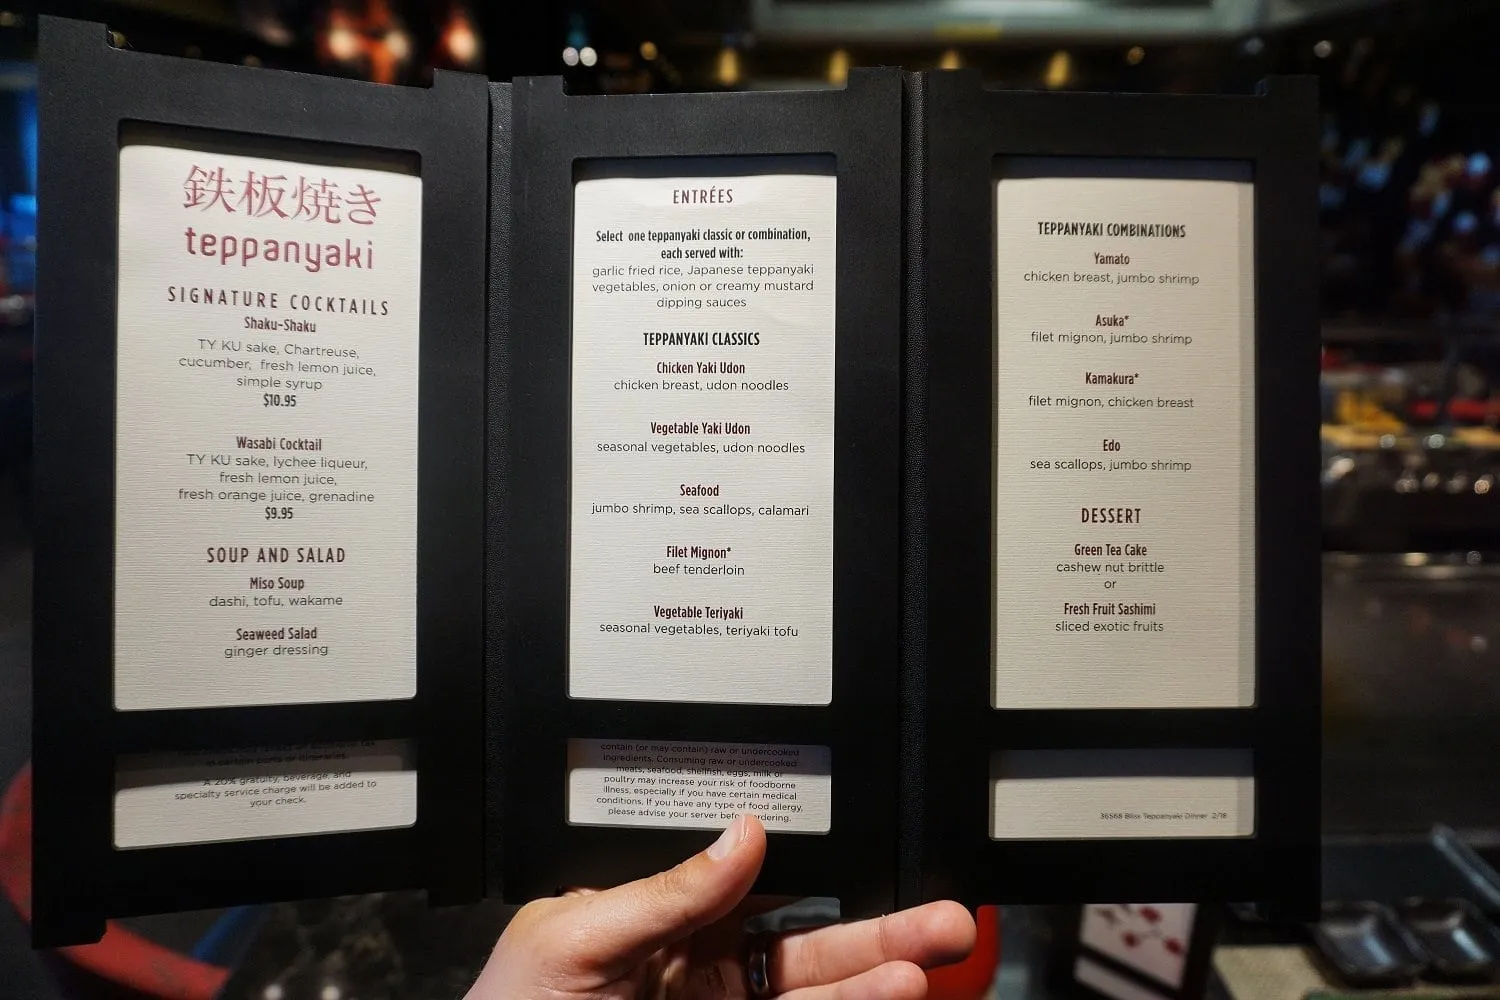 鉄板焼き
teppanyaki
SIGNATURE COCKTAILS
Shaku-Shaku
TY KU sake, Chartreuse,
cucumber, fresh lemon juice,
simple syrup
$10.95
Wasabi Cocktail
TY KU sake, lychee liqueur,
fresh lemon juice,
fresh orange juice, grenadine
$9.95
SOUP AND SALAD
Miso Soup
dashi, tofu, wakame
Seaweed Salad
ginger dressing
in certain ports or itineraries.
A 20% gratuity, beverage, and
specialty service charge will be added to
your check.
ENTRÉES
Select one teppanyaki classic or combination,
each served with:
garlic fried rice, Japanese teppanyaki
vegetables, onion or creamy mustard
dipping sauces
TEPPANYAKI CLASSICS
Chicken Yaki Udon
chicken breast, udon noodles
Vegetable Yaki Udon
seasonal vegetables, udon noodles
Seafood
jumbo shrimp, sea scallops, calamari
Filet Mignon*
beef tenderloin
Vegetable Teriyaki
seasonal vegetables, teriyaki tofu
contain (or may contain) raw or undercooked
ingredients. Consuming raw or undercooked
meats, seafood, shellfish, eggs, milk or
poultry may increase your risk of foodborne
illness, especially if you have certain medical
conditions. If you have any type of food allergy,
please advise your server
TEPPANYAKI COMBINATIONS
Yamato
chicken breast, jumbo shrimp
Asuka*
filet mignon, jumbo shrimp
Kamakura*
filet mignon, chicken breast
Edo
sea scallops, jumbo shrimp
DESSERT
Green Tea Cake
cashew nut brittle
or
Fresh Fruit Sashimi
sliced exotic fruits
36568 Bliss Teppanyaki Dinner 2/18